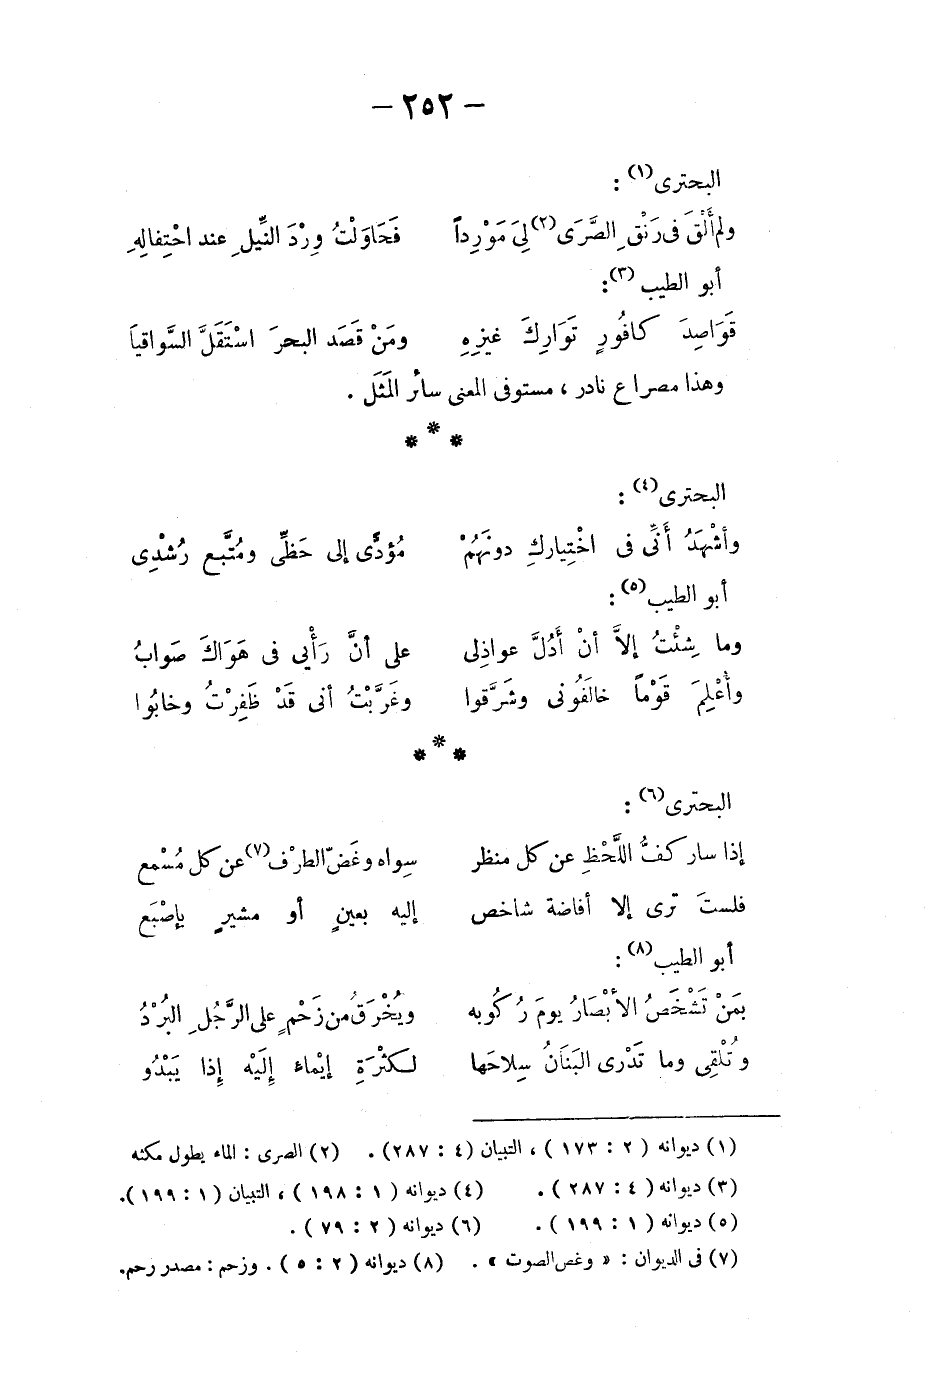 — ٢٥٢ —
البحترى(١) :
ولم أَلْقَ فى رَنْقِ الصَّرَى(٢) لِىَ مَوْرِداً فَحَاوَلْتُ وِرْدَ النِّيلِ عند احْتِفالِهِ
أبو الطيب(٣):
قَوَاصِدَ كافُورٍ تَوَارِكَ غيرِهِ ومَنْ قَصَد البحرَ اسْتَقَلَّ السَّواقياَ
وهذا مصراع نادر ، مستوفى المعنى سائر المَثَل .
* * *
البحترى(٤) :
وأشْهَدُ أَنِّى فى اخْتِيارِكِ دونَهُمْ مُؤدًّى إلى حَظِّى ومُتَّبع رُشْدِى
أبو الطيب(٥) :
وما شِئْتُ إلاَّ أنْ أَدُلَّ عواذِلى على أنَّ رَأْيِى فى هَوَاكَ صَوابُ
وأُعْلِمَ قَوْماً خالَفُونى وشَرَّقوا وغَرَّبْتُ أنى قَدْ ظَفِرْتُ وخابُوا
* * *
البحترى(٦) :
إذا سار كفُّ اللَّحْظِ عن كل منظر سِواه وغَضّ الطرْف(٧) عن كل مُسْمع
فلستَ ترى إلا أفاضة شاخص إليه بعينٍ أو مشيرٍ بإصْبَع
أبو الطيب(٨) :
بمَنْ تَشْخَصُ الأبْصَارُ يومَ رُكُوبه ويُخْرَقُ من زَحْمٍ على الرَّجُلِ البُرْدُ
وتُلْقِى وما تَدْرى البَنَانُ سِلاحَها لكثْرَةِ إيْماء إِلَيْه إِذا يَبْدُو
(١) ديوانه ( ٢ : ١٧٣ ) ، التبيان (٤ : ٢٨٧) . (٢) الصرى : الماء يطول مكثه
(٣) ديوانه ( ٤ : ٢٨٧ ) . (٤) ديوانه ( ١ : ١٩٨ ) ، التبيان (١ : ١٩٩).
(٥) ديوانه ( ١ : ١٩٩ ) . (٦) ديوانه ( ٢ : ٧٩ ) .
(٧) فى الديوان : « وغص الصوت » . (٨) ديوانه ( ٢ : ٥ ) . وزحم : مصدر رحم.